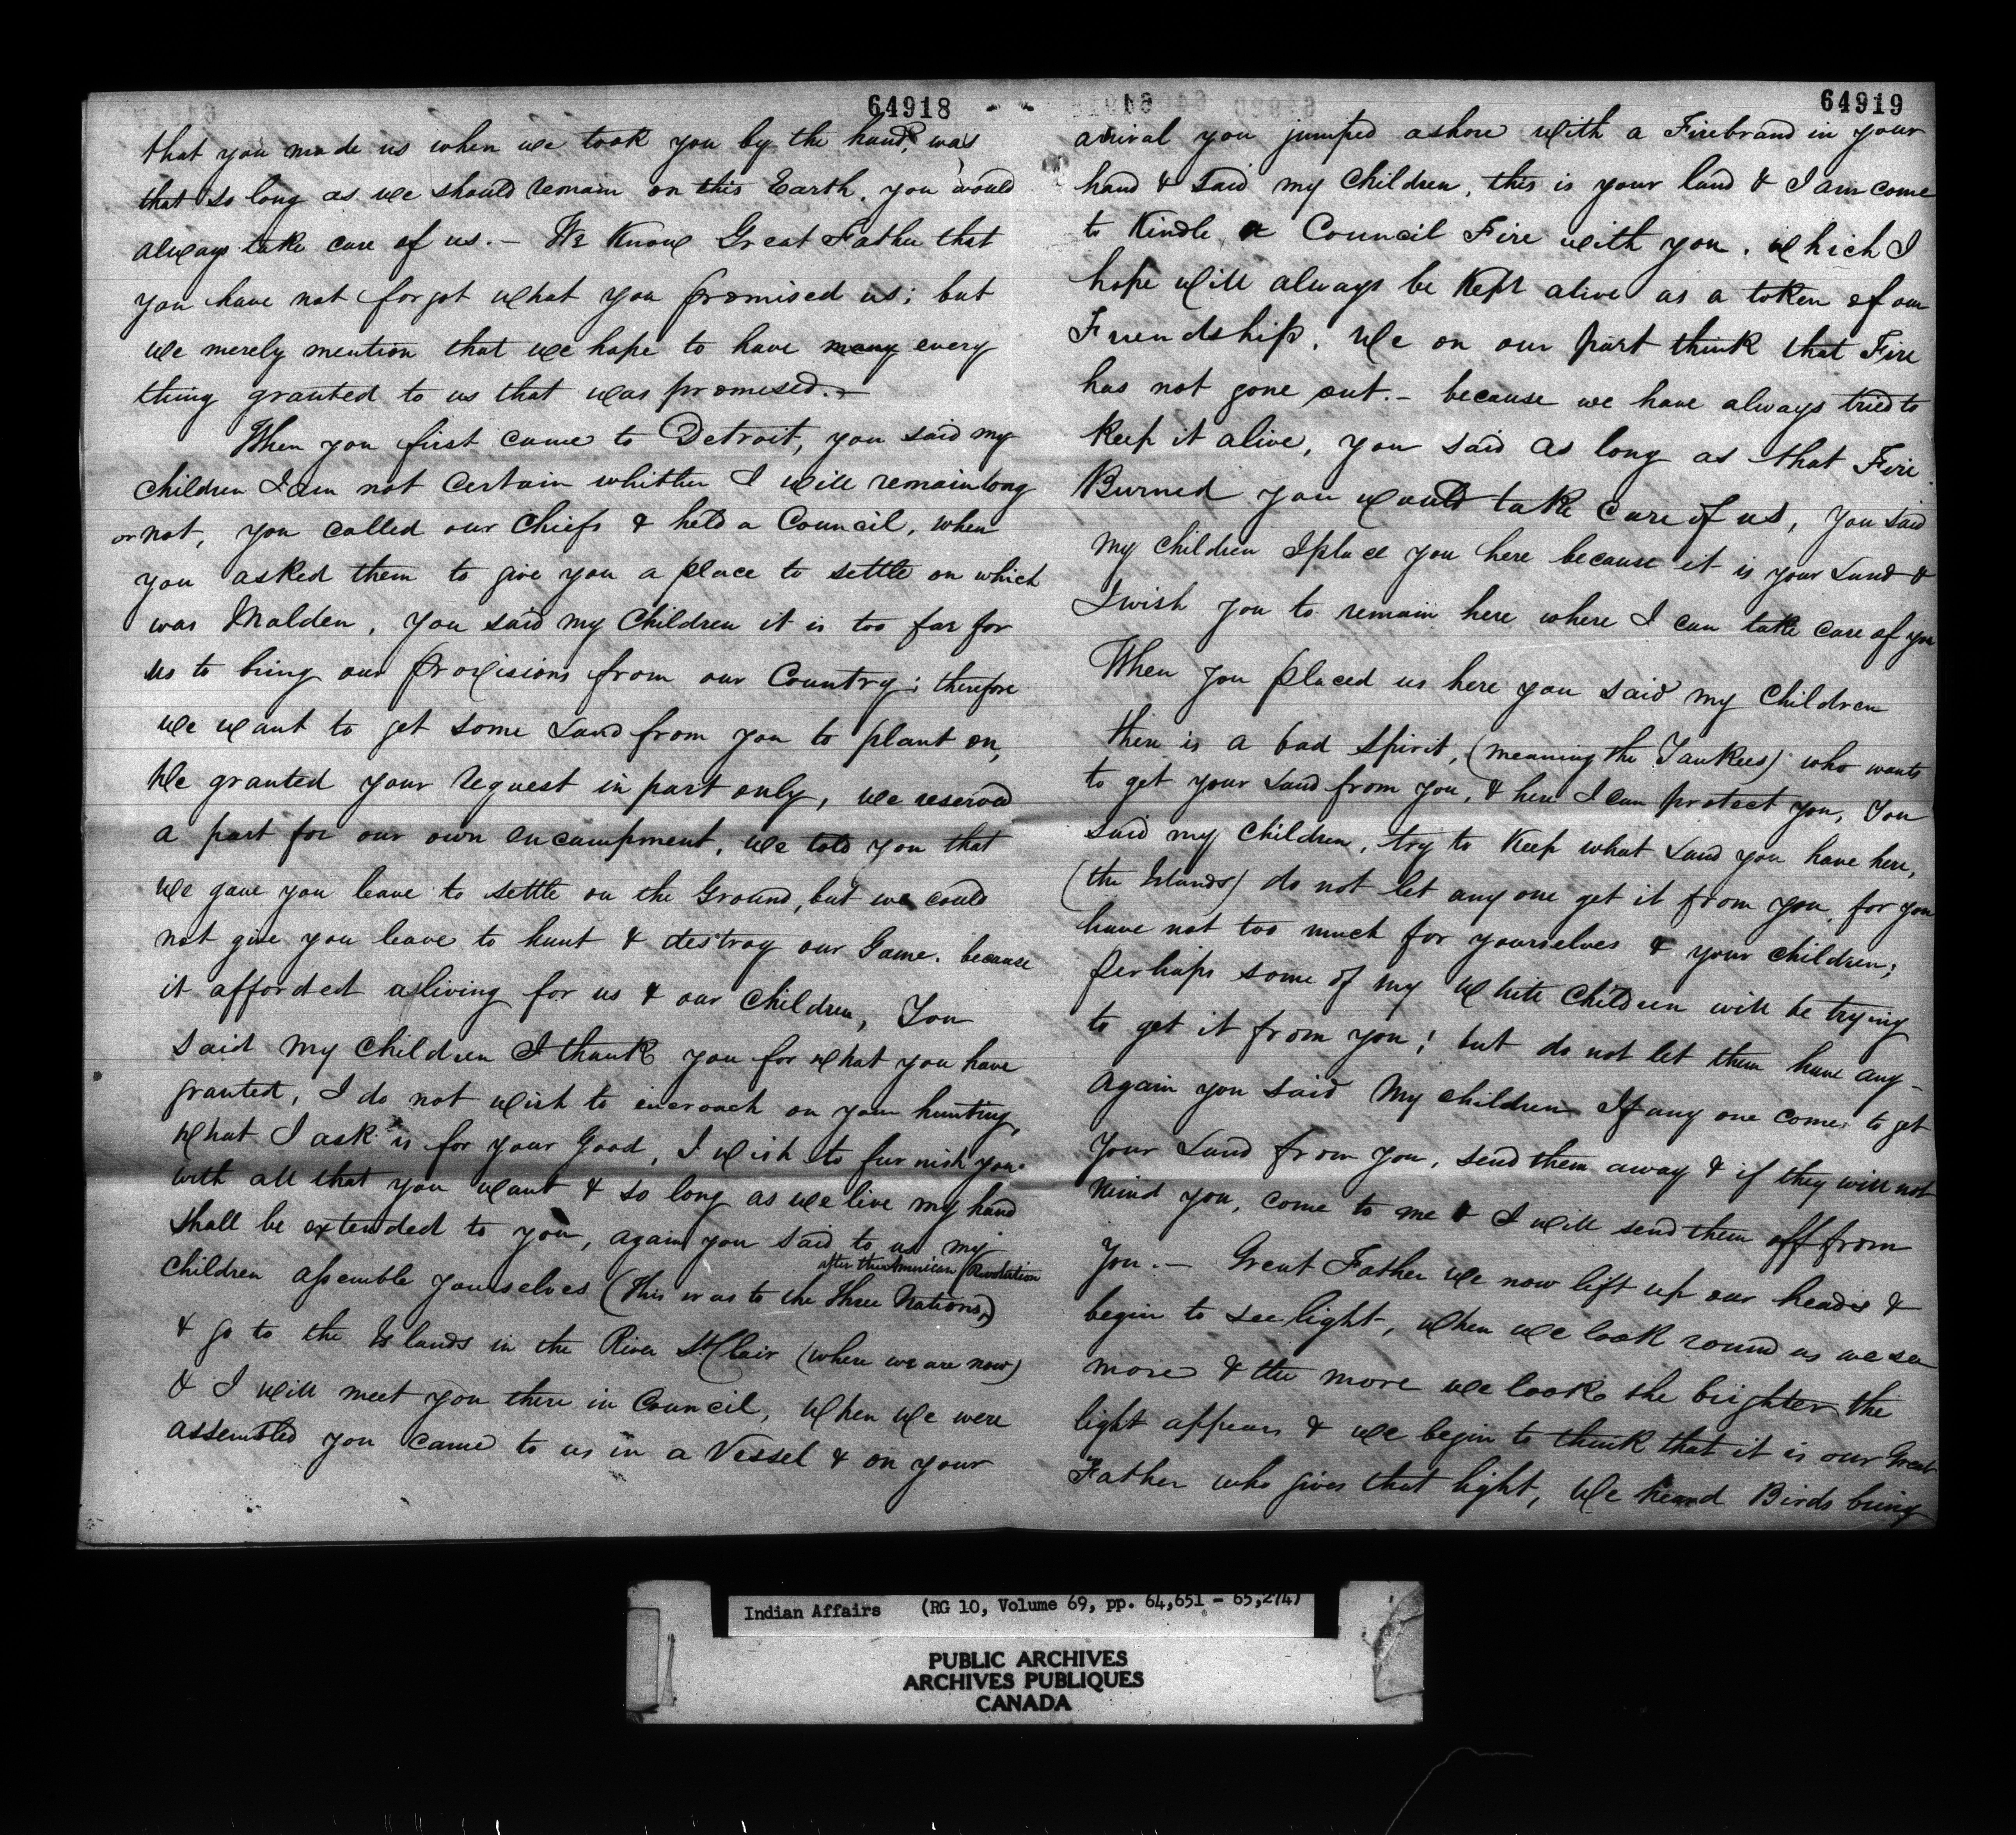 64918
that you made us when we took you by the hand, was
that so long as we should remain on this Earth, you would
always take care of us. - We Know Great Father that
you have not forgot what you promised us; but
we merely mention that we hope to have many every
thing granted to us that was promised. -
When you first came to Detroit, you said my
Children I am not certain whither I will remain long
or not, you called our Chiefs & held a Council, when
you asked them to give you a place to settle on which
was Malden, you said my Children it is too far for
us to bring our Provisions from our Country; therefore
we want to get some Land from you to plant on,
We granted your request in part only, we reserved
a part for our own encampment, we told you that
we gave you leave to settle on the Ground, but we could
not give you leave to hunt & destroy our Game. because
it afforded a living for us & our Children, You
said my Children I thank you for what you have
granted, I do not wish to encroach on your hunting,
What I ask is for your Good, I wish to furnish you
with all that you want & so long as we live my hand
shall be extended to you, again you said to us my
after the American Revolution
Children assemble yourselves (this was to the three Nations)
& go to the Islands in the River St Clair (where we are now)
& I will meet you there in Council, When we were
assembled you came to us in a Vessel & on your
64919
arrival you jumped ashore with a Firebrand in your
hand & said my Children, this is your land & I am come
to Kindle a Council Fire with you, which I
hope will always be Kept alive as a token of our
Friendship. We on our part think that Fire
has not gone out. - because we have always tried to
Keep it alive, you said as long as that Fire
Burned you would take care of us, you said
my Children I place you here because it is your Land &
I wish you to remain here where I can take care of you
When you placed us here you said my Children
there is a bad Spirit, (meaning the Yankees) who wants
to get your Land from you, & here I can protect you, You
said my Children, try to Keep what Land you have here,
(the Islands) do not let any one get it from you, for you
have not too much for yourselves & your Children;
Perhaps some of my White Children will be trying
to get it from you; but do not let them have any -
Again you said My Children If any one comes to get
your Land from you, send them away & if they will not
mind you, come to me & I will send them off from
you. - Great Father we now lift up our heads &
begin to see light, when we look round us we see
more & the more we look the brighter the
light appears & we begin to think that it is our Great
Father who gives that light, We heard Birds bring
Indian Affairs (RG 10, Volume 69, pp. 64,651 - 65,274)
PUBLIC ARCHIVES
ARCHIVES PUBLIQUES
CANADA